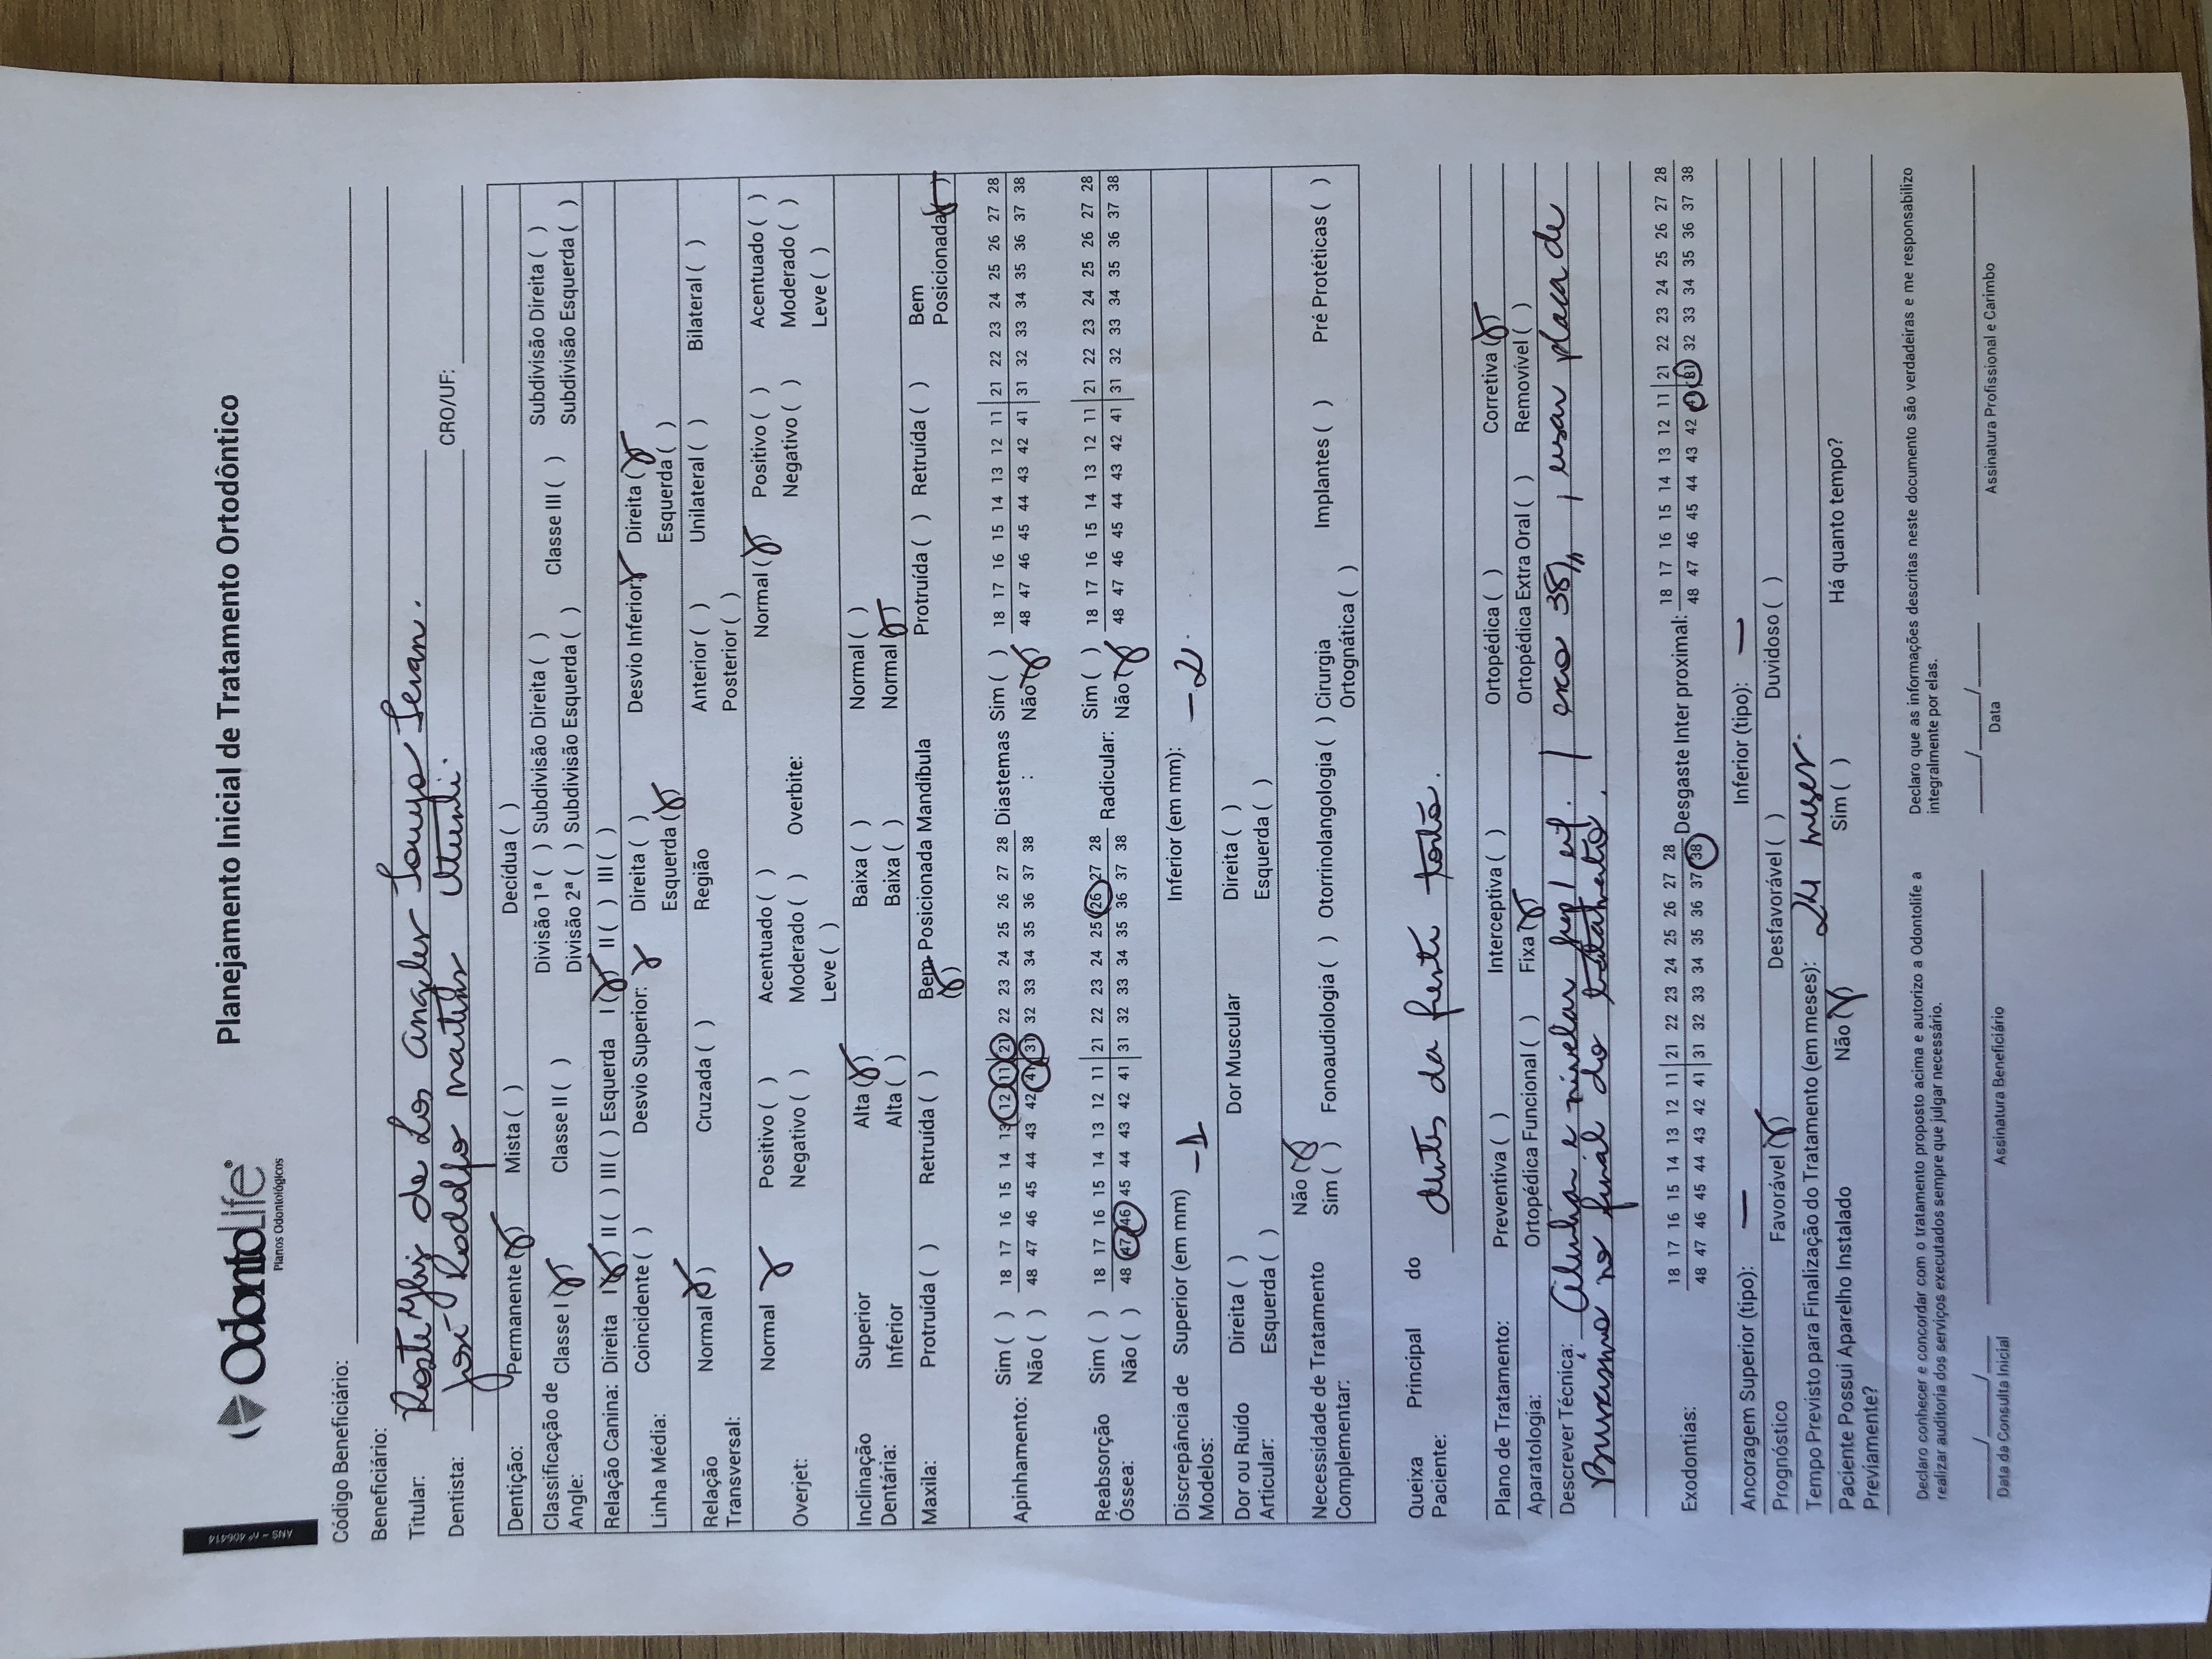 ANS - nº 406414
OdontoLife®
Planos Odontológicos
Planejamento Inicial de Tratamento Ortodôntico
Código Beneficiário:
Beneficiário:
Titular: de Los Angeles
Dentista: José Rodolfo CRO/UF:
Dentição: Permanente (X) Mista ( ) Decídua ( )
Classificação de Angle: Classe I (X) Classe II ( ) Divisão 1ª ( ) Subdivisão Direita ( ) Classe III ( ) Subdivisão Direita ( )
Divisão 2ª ( ) Subdivisão Esquerda ( ) Subdivisão Esquerda ( )
Relação Canina: Direita I (X) II ( ) III ( ) Esquerda I (X) II ( ) III ( )
Linha Média: Coincidente ( ) Desvio Superior: X Direita ( ) Desvio Inferior: X Direita (X)
Esquerda (X) Esquerda ( )
Relação Transversal: Normal (X) Cruzada ( ) Região Anterior ( ) Unilateral ( ) Bilateral ( )
Posterior ( )
Overjet: Normal X Positivo ( ) Acentuado ( ) Overbite: Normal (X) Positivo ( ) Acentuado ( )
Negativo ( ) Moderado ( ) Negativo ( ) Moderado ( )
Leve ( ) Leve ( )
Inclinação Dentária: Superior Alta (X) Baixa ( ) Normal ( )
Inferior Alta ( ) Baixa ( ) Normal (X)
Maxila: Protruída ( ) Retruída ( ) Bem Posicionada (X) Mandíbula Protruída ( ) Retruída ( ) Bem Posicionada (X)
Apinhamento: Sim ( ) 18 17 16 15 14 13 12 11 | 21 22 23 24 25 26 27 28 Diastemas : Sim ( ) 18 17 16 15 14 13 12 11 | 21 22 23 24 25 26 27 28
Não ( ) 48 47 46 45 44 43 42 41 | 31 32 33 34 35 36 37 38 Não (X) 48 47 46 45 44 43 42 41 | 31 32 33 34 35 36 37 38
Reabsorção Óssea: Sim ( ) 18 17 16 15 14 13 12 11 | 21 22 23 24 25 26 27 28 Radicular: Sim ( ) 18 17 16 15 14 13 12 11 | 21 22 23 24 25 26 27 28
Não ( ) 48 47 46 45 44 43 42 41 | 31 32 33 34 35 36 37 38 Não (X) 48 47 46 45 44 43 42 41 | 31 32 33 34 35 36 37 38
Discrepância de Modelos: Superior (em mm) -1 Inferior (em mm): -2.
Dor ou Ruído Articular: Direita ( ) Dor Muscular Direita ( )
Esquerda ( ) Esquerda ( )
Necessidade de Tratamento Complementar: Não (X)
Sim ( ) Fonoaudiologia ( ) Otorrinolangologia ( ) Cirurgia Ortognática ( ) Implantes ( ) Pré Protéticas ( )
Queixa Principal do Paciente: dentes da frente torto.
Plano de Tratamento: Preventiva ( ) Interceptiva ( ) Ortopédica ( ) Corretiva (X)
Aparatologia: Ortopédica Funcional ( ) Fixa (X) Ortopédica Extra Oral ( ) Removível ( )
Descrever Técnica: Alinhar e nivelar sup/inf. / exo 38, usar placa de
Bruxismo no final do tratamento.
Exodontias: 18 17 16 15 14 13 12 11 | 21 22 23 24 25 26 27 28 Desgaste Inter proximal: 18 17 16 15 14 13 12 11 | 21 22 23 24 25 26 27 28
48 47 46 45 44 43 42 41 | 31 32 33 34 35 36 37 38 48 47 46 45 44 43 42 41 | 31 32 33 34 35 36 37 38
Ancoragem Superior (tipo): — Inferior (tipo): —
Prognóstico Favorável (X) Desfavorável ( ) Duvidoso ( )
Tempo Previsto para Finalização do Tratamento (em meses): 24 meses.
Paciente Possui Aparelho Instalado Previamente? Não (X) Sim ( ) Há quanto tempo?
Declaro conhecer e concordar com o tratamento proposto acima e autorizo a Odontolife a
realizar auditoria dos serviços executados sempre que julgar necessário.
Declaro que as informações descritas neste documento são verdadeiras e me responsabilizo
integralmente por elas.
Data da Consulta Inicial Assinatura Beneficiário Data Assinatura Profissional e Carimbo